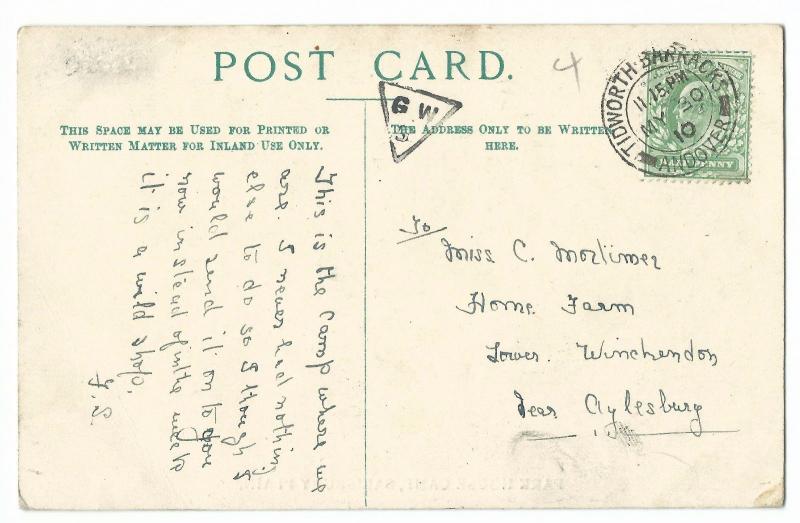 POST CARD.
4
G W
3
TIDWORTH·BARRACKS
11 15 PM
MY 30
10
ANDOVER
HALFPENNY
THIS SPACE MAY BE USED FOR PRINTED OR
WRITTEN MATTER FOR INLAND USE ONLY.
THE ADDRESS ONLY TO BE WRITTEN
HERE.
This is the Camp where we
are. I never had nothing
else to do so I though I
would send it on to you
now instead of in the week
it is a wild shop.
To
Miss C. Mortimer
Home Farm
Lower Winchendon
Near Aylesburg
PARK HOUSE CAMP, SALISBURY PLAIN.